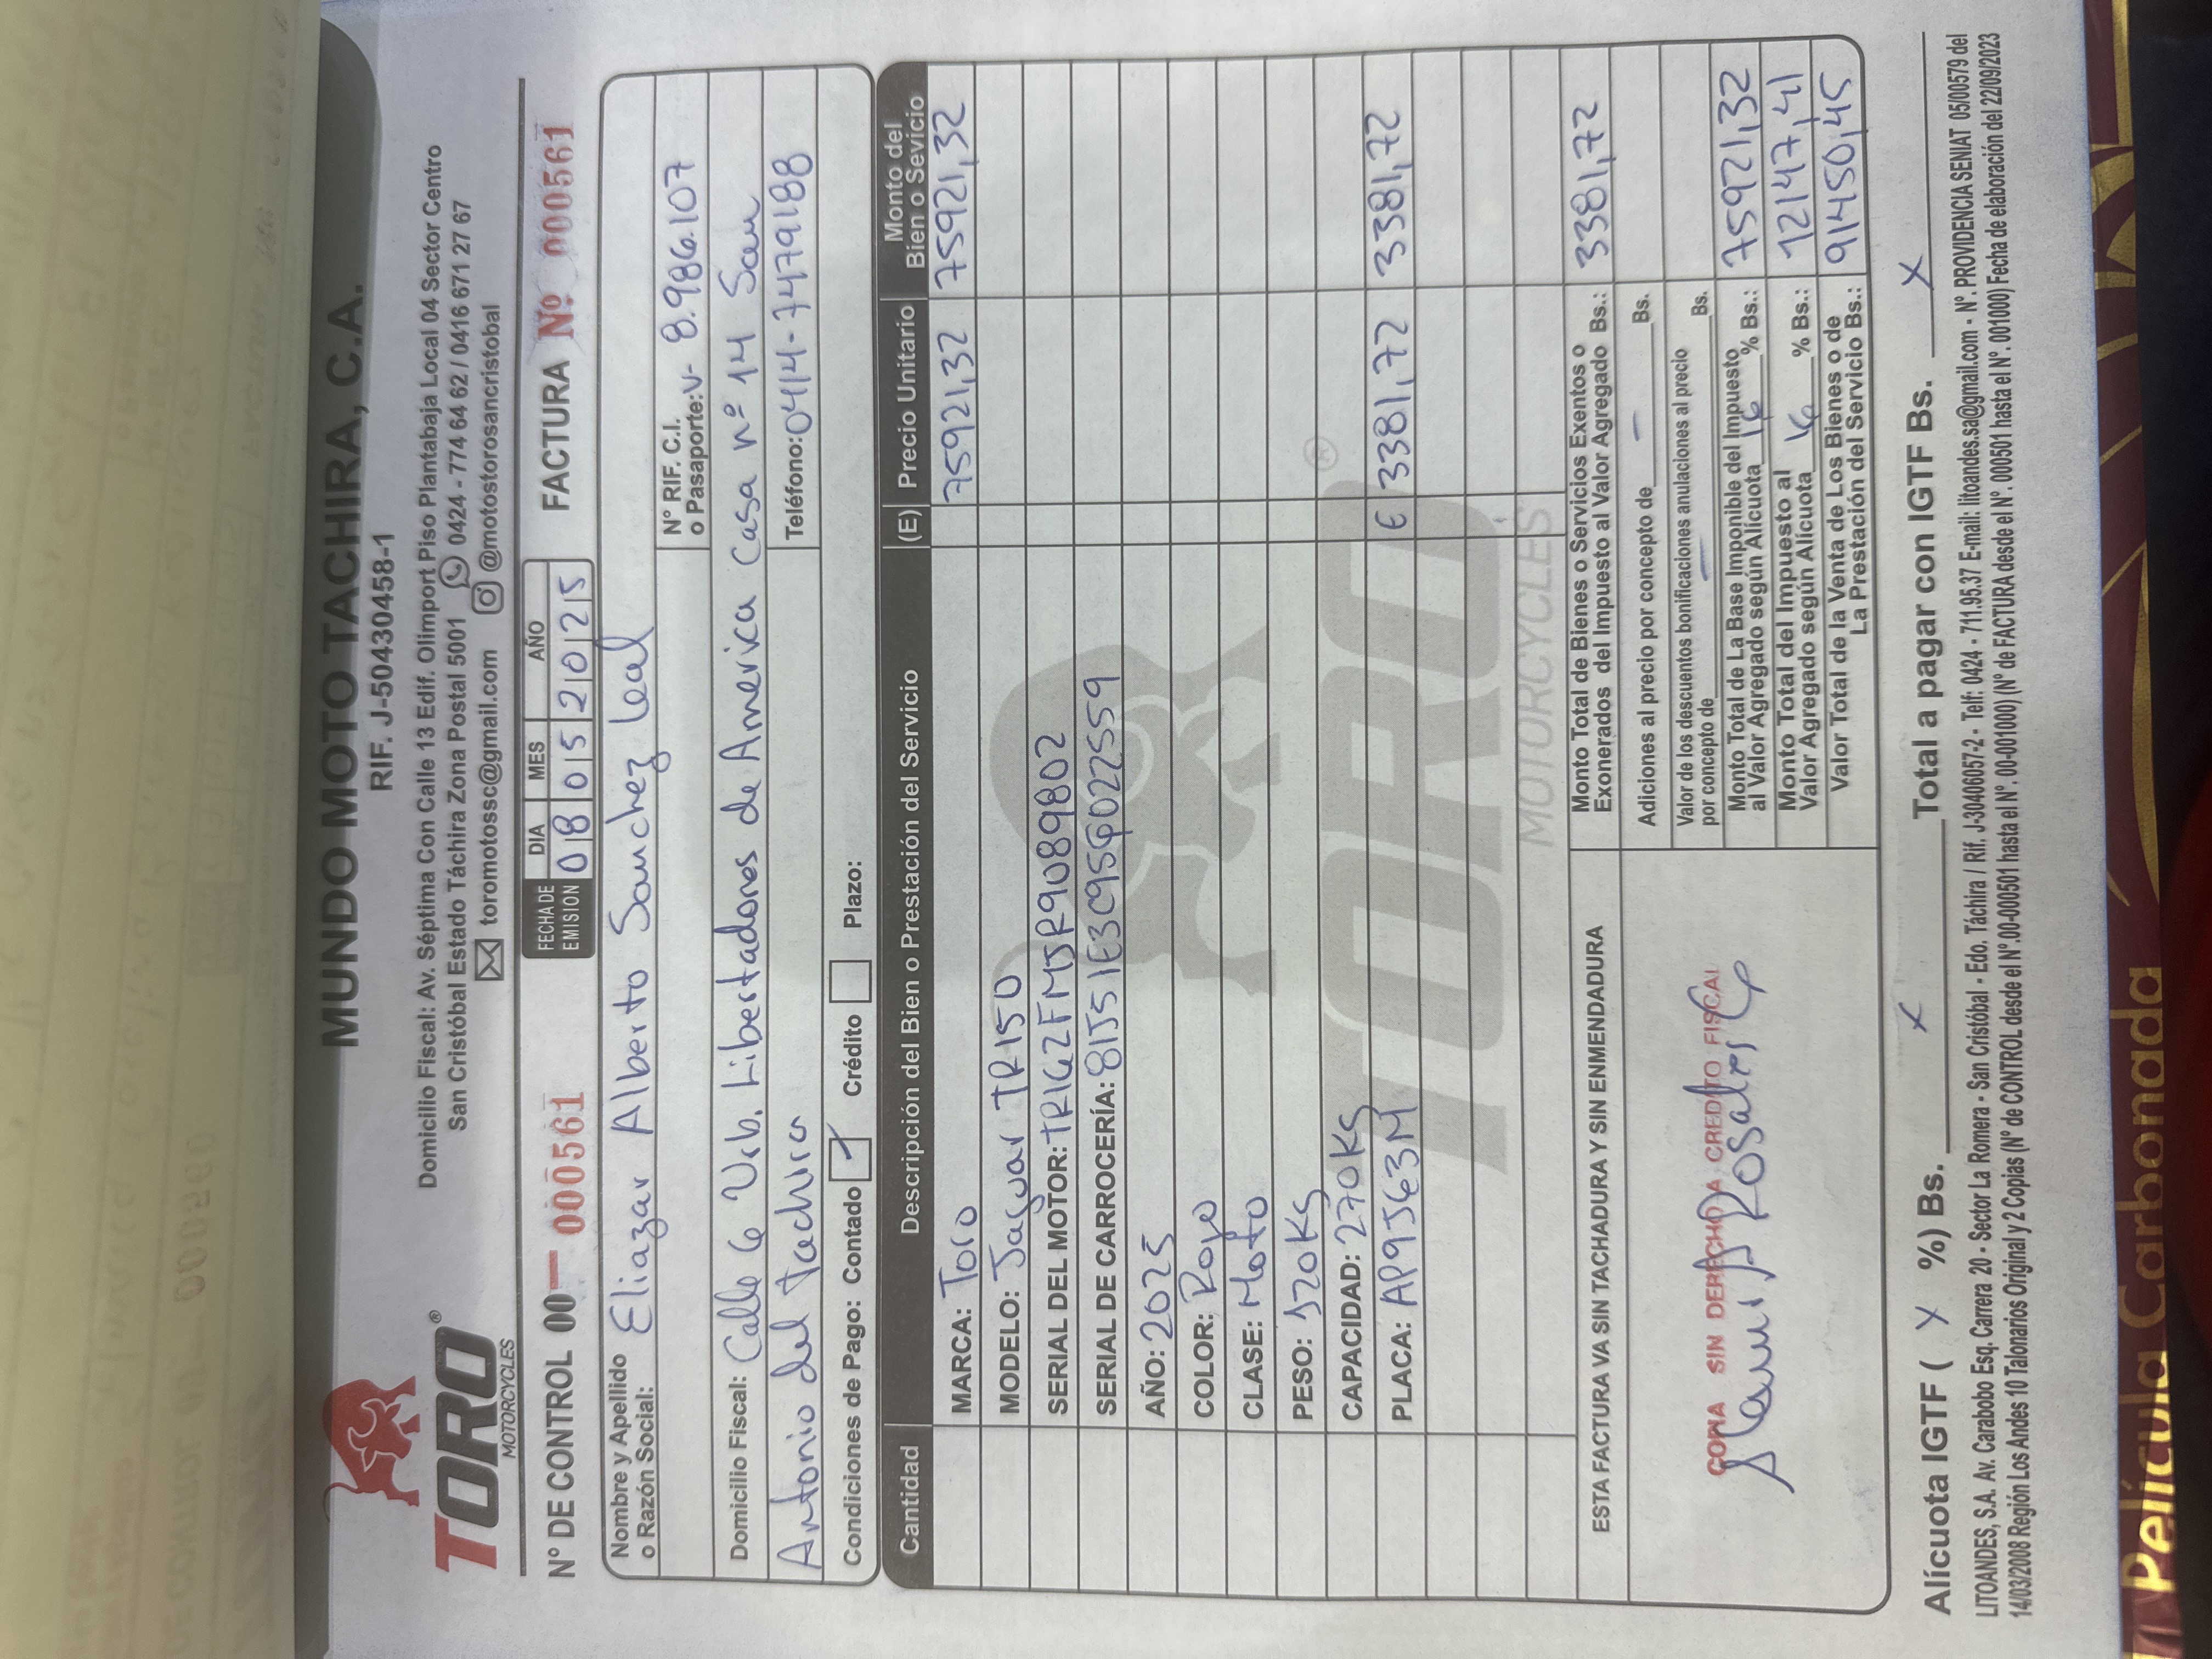 MUNDO MOTO TACHIRA, C.A.
RIF. J-50430458-1
TORO®
MOTORCYCLES
Domicilio Fiscal: Av. Séptima Con Calle 13 Edif. Olimport Piso Plantabaja Local 04 Sector Centro
San Cristóbal Estado Táchira Zona Postal 5001 0424 - 774 64 62 / 0416 671 27 67
toromotossc@gmail.com @motostorosancristobal
N° DE CONTROL 00- 000561
FECHA DE EMISION DIA MES AÑO
08 05 2025
FACTURA Nº 000561
Nombre y Apellido o Razón Social: Eliazar Alberto Sanchez Leal
N° RIF. C.I. o Pasaporte: V- 8.986.107
Domicilio Fiscal: Calle 6 Urb. Libertadores de America Casa nº 14 San
Antonio del Tachira Teléfono: 0414-7479188
Condiciones de Pago: Contado ✓ Crédito Plazo:
Cantidad Descripción del Bien o Prestación del Servicio (E) Precio Unitario Monto del Bien o Sevicio
MARCA: Toro 75921,32 75921,32
MODELO: Jaguar TR150
SERIAL DEL MOTOR: TR162FMJR9089802
SERIAL DE CARROCERÍA: 81J51E3C9SG022559
AÑO: 2025
COLOR: Rojo
CLASE: Moto
PESO: 120KG
CAPACIDAD: 270KG
PLACA: AP9J63M E 3381,72 3381,72
TORO®
MOTORCYCLES
ESTA FACTURA VA SIN TACHADURA Y SIN ENMENDADURA
COPIA SIN DERECHO A CREDITO FISCAL
Monto Total de Bienes o Servicios Exentos o Exonerados del Impuesto al Valor Agregado Bs.: 3381,72
Adiciones al precio por concepto de - Bs.
Valor de los descuentos bonificaciones anulaciones al precio por concepto de - Bs.
Monto Total de La Base Imponible del Impuesto al Valor Agregado según Alícuota 16 % Bs.: 75921,32
Monto Total del Impuesto al Valor Agregado según Alícuota 16 % Bs.: 12147,41
Valor Total de la Venta de Los Bienes o de La Prestación del Servicio Bs.: 91450,45
Alícuota IGTF ( X %) Bs. X Total a pagar con IGTF Bs. X
LITOANDES, S.A. Av. Carabobo Esq. Carrera 20 - Sector La Romera - San Cristóbal - Edo. Táchira / Rif. J-30406057-2 - Telf: 0424 - 711.95.37 E-mail: litoandes.sa@gmail.com - Nº. PROVIDENCIA SENIAT 05/00579 del
14/03/2008 Región Los Andes 10 Talonarios Original y 2 Copias (Nº de CONTROL desde el Nº.00-000501 hasta el Nº. 00-001000) (Nº de FACTURA desde el Nº. 000501 hasta el Nº. 001000) Fecha de elaboración del 22/09/2023
Película Carbonada